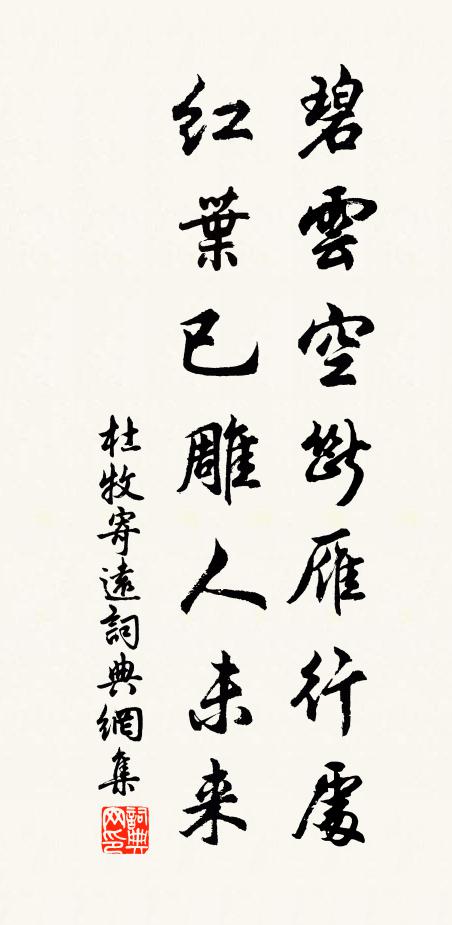 碧雲空斷雁行處
紅葉已雕人未来
杜牧寄遠詞典網集
詞典网印